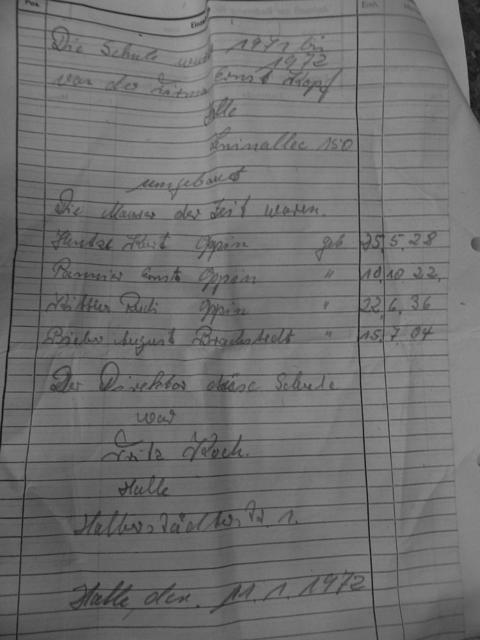 Pos.
Einh.
Die Schule wurde 1971 bis
1972
von der Firma Ernst Kopf
Halle
150
umgebaut
Die Maurer der Zeit waren.
Kurt Oppin geb 25.5.28
Ernst Oppin " 10.10.22.
Rudi Oppin " 22.6.36
August Brachstedt " 15.7.04
Der Direktor diese Schule
war
Fritz Koch.
Halle
Halberstädter Str 1.
Halle, den. 11.1.1972